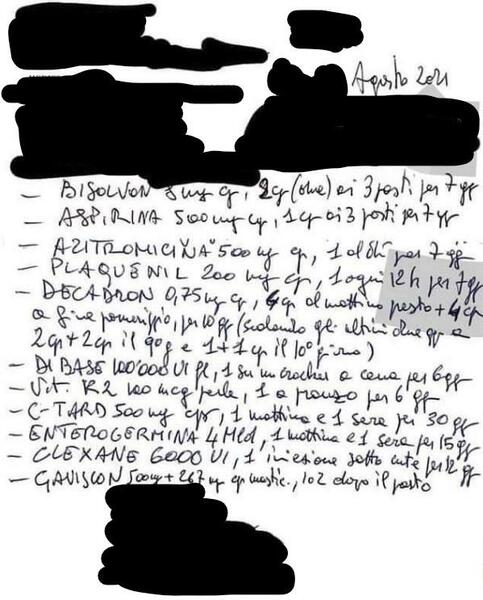 Agosto 2021
- BISOLVON 8 mg cp, 2 cp (due) ai 3 pasti per 7 gg
- ASPIRINA 500 mg cp, 1 cp ai 3 pasti per 7 gg
- AZITROMICINA 500 mg cp, 1 al dì per 7 gg
- PLAQUENIL 200 mg cp, 1 ogni 12 h per 7 gg
- DECADRON 0,75 mg cp, 4 cp al mattino pasto + 4 cp
a fine pomeriggio, per 10 gg (scalando gli ultimi due gg a
2 cp + 2 cp il 9° g e 1 + 1 cp il 10° giorno)
- DIBASE 100'000 UI fl, 1 su un cracker a cena per 6 gg
- Vit. K2 100 mcg perle, 1 a pranzo per 6 gg
- C-TARD 500 mg cps, 1 mattina e 1 sera per 30 gg
- ENTEROGERMINA 4 Mld, 1 mattina e 1 sera per 15 gg
- CLEXANE 6000 UI, 1 iniezione sotto cute per 12 gg
- GAVISCON 500 mg + 267 mg cp mastic., 1 o 2 dopo il pasto